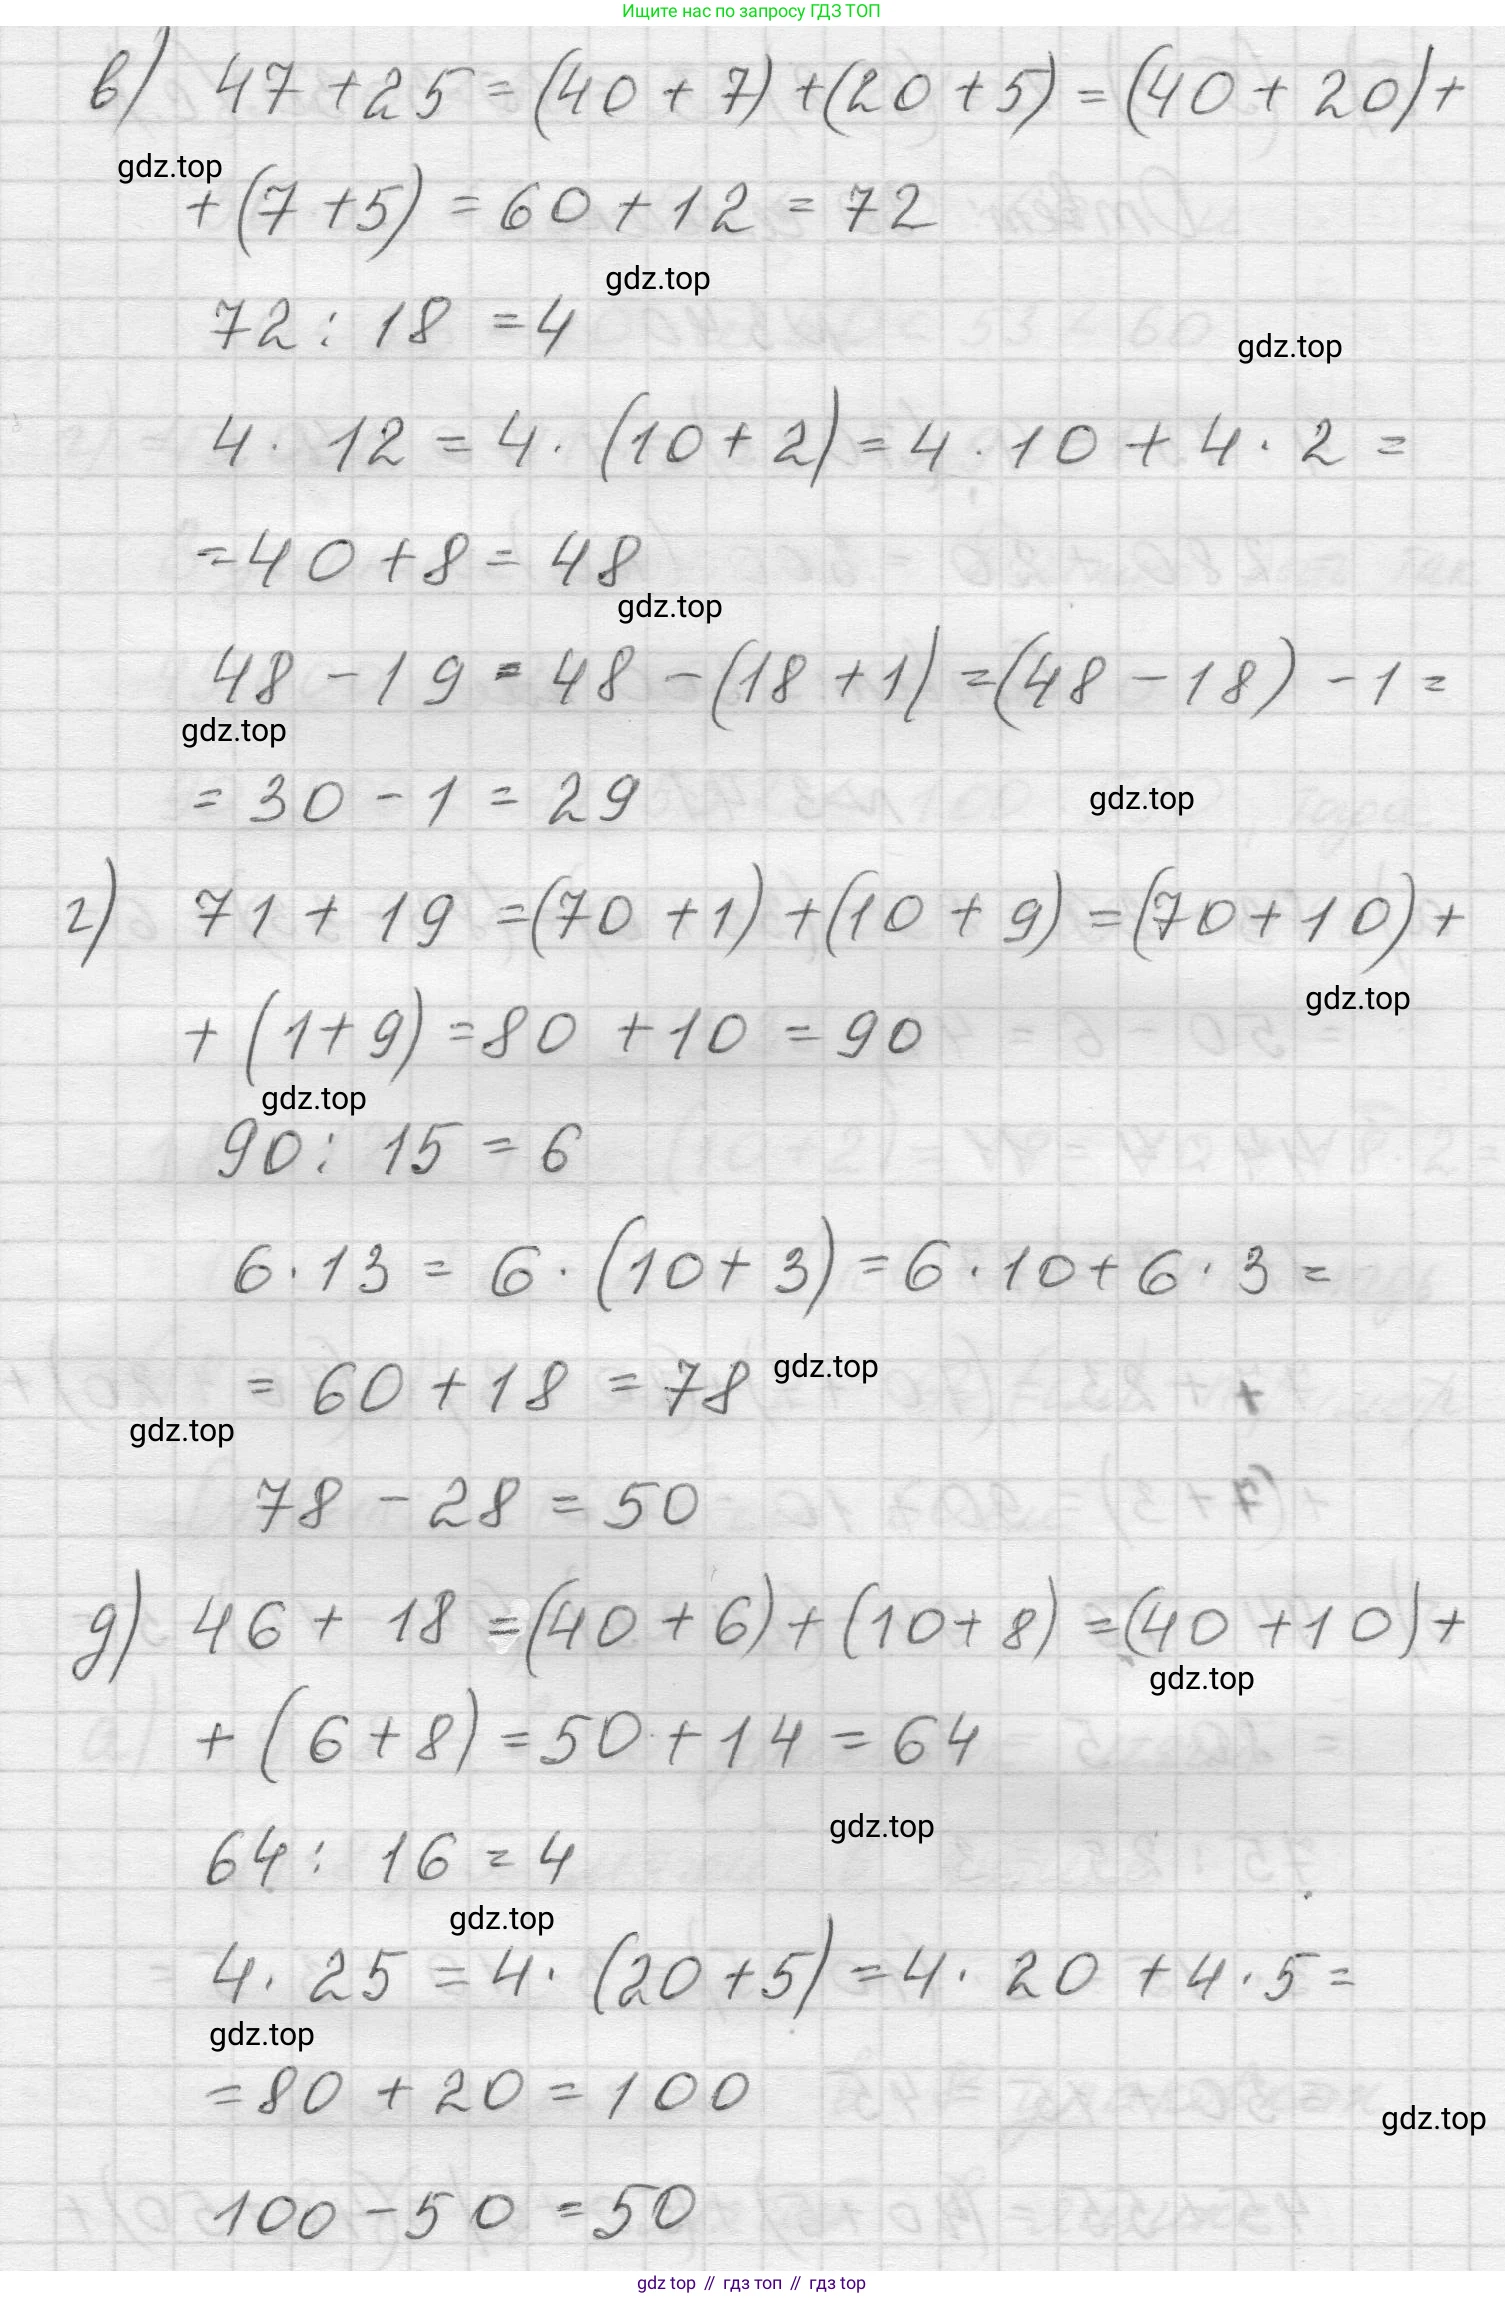 Ищите нас по запросу ГДЗ ТОП
в) 47 + 25 = (40 + 7) + (20 + 5) = (40 + 20) +
gdz.top
+ (7 + 5) = 60 + 12 = 72
gdz.top
72 : 18 = 4
gdz.top
4 · 12 = 4 · (10 + 2) = 4 · 10 + 4 · 2 =
= 40 + 8 = 48
gdz.top
48 - 19 = 48 - (18 + 1) = (48 - 18) - 1 =
gdz.top
= 30 - 1 = 29
gdz.top
г) 71 + 19 = (70 + 1) + (10 + 9) = (70 + 10) +
gdz.top
+ (1 + 9) = 80 + 10 = 90
gdz.top
90 : 15 = 6
6 · 13 = 6 · (10 + 3) = 6 · 10 + 6 · 3 =
= 60 + 18 = 78
gdz.top
gdz.top
78 - 28 = 50
д) 46 + 18 = (40 + 6) + (10 + 8) = (40 + 10) +
gdz.top
+ (6 + 8) = 50 + 14 = 64
gdz.top
64 : 16 = 4
gdz.top
4 · 25 = 4 · (20 + 5) = 4 · 20 + 4 · 5 =
gdz.top
= 80 + 20 = 100
gdz.top
100 - 50 = 50
gdz top // гдз топ // гдз top